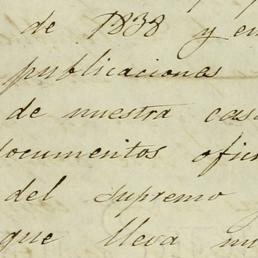 de 1838 y en
publicaciones
de nuestra cas
documentos ofic
del supremo
que lleva mi